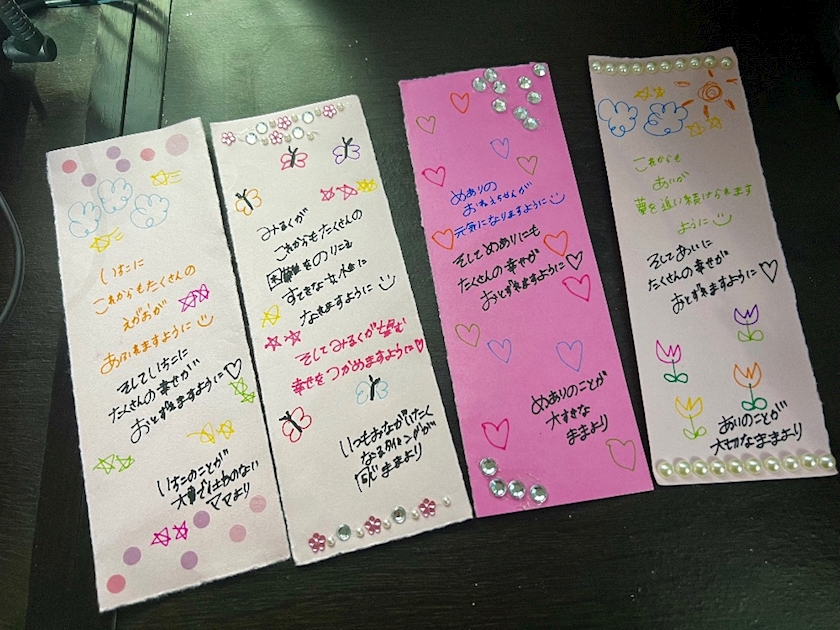 いちこに
これからもたくさんの
えがおが
あふれますように
そしていちこに
たくさんの幸せが
おとずれますように
いちこのことが
大すきで仕方のない
ママより
みるくが
これからもたくさんの
をのりこえ
すてきな女性に
なれますように
そしてみるくが望む
幸せをつかめますように
いつもおなかがいたく
なるタイミングが
同じままより
めありの
おねえちゃんが
元気になりますように
そしてめありにも
たくさんの幸せが
おとずれますように
めありのことが
大すきな
ままより
これからも
あいが
夢を追い続けられます
ように
そしてあいに
たくさんの幸せが
おとずれますように
あいのことが
大切なままより